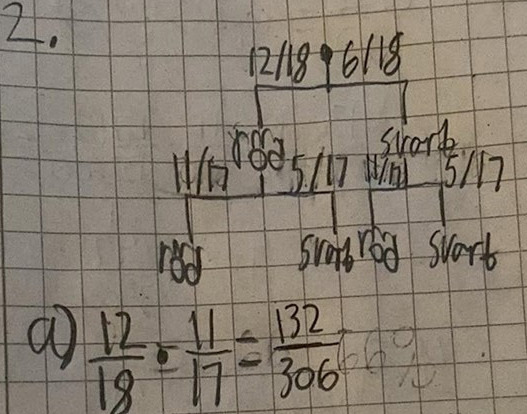 2.
12/18 6/18
röd svart
11/17 5/17 11/17 5/17
röd svart röd svart
a) 12/18 • 11/17 = 132/306 66%